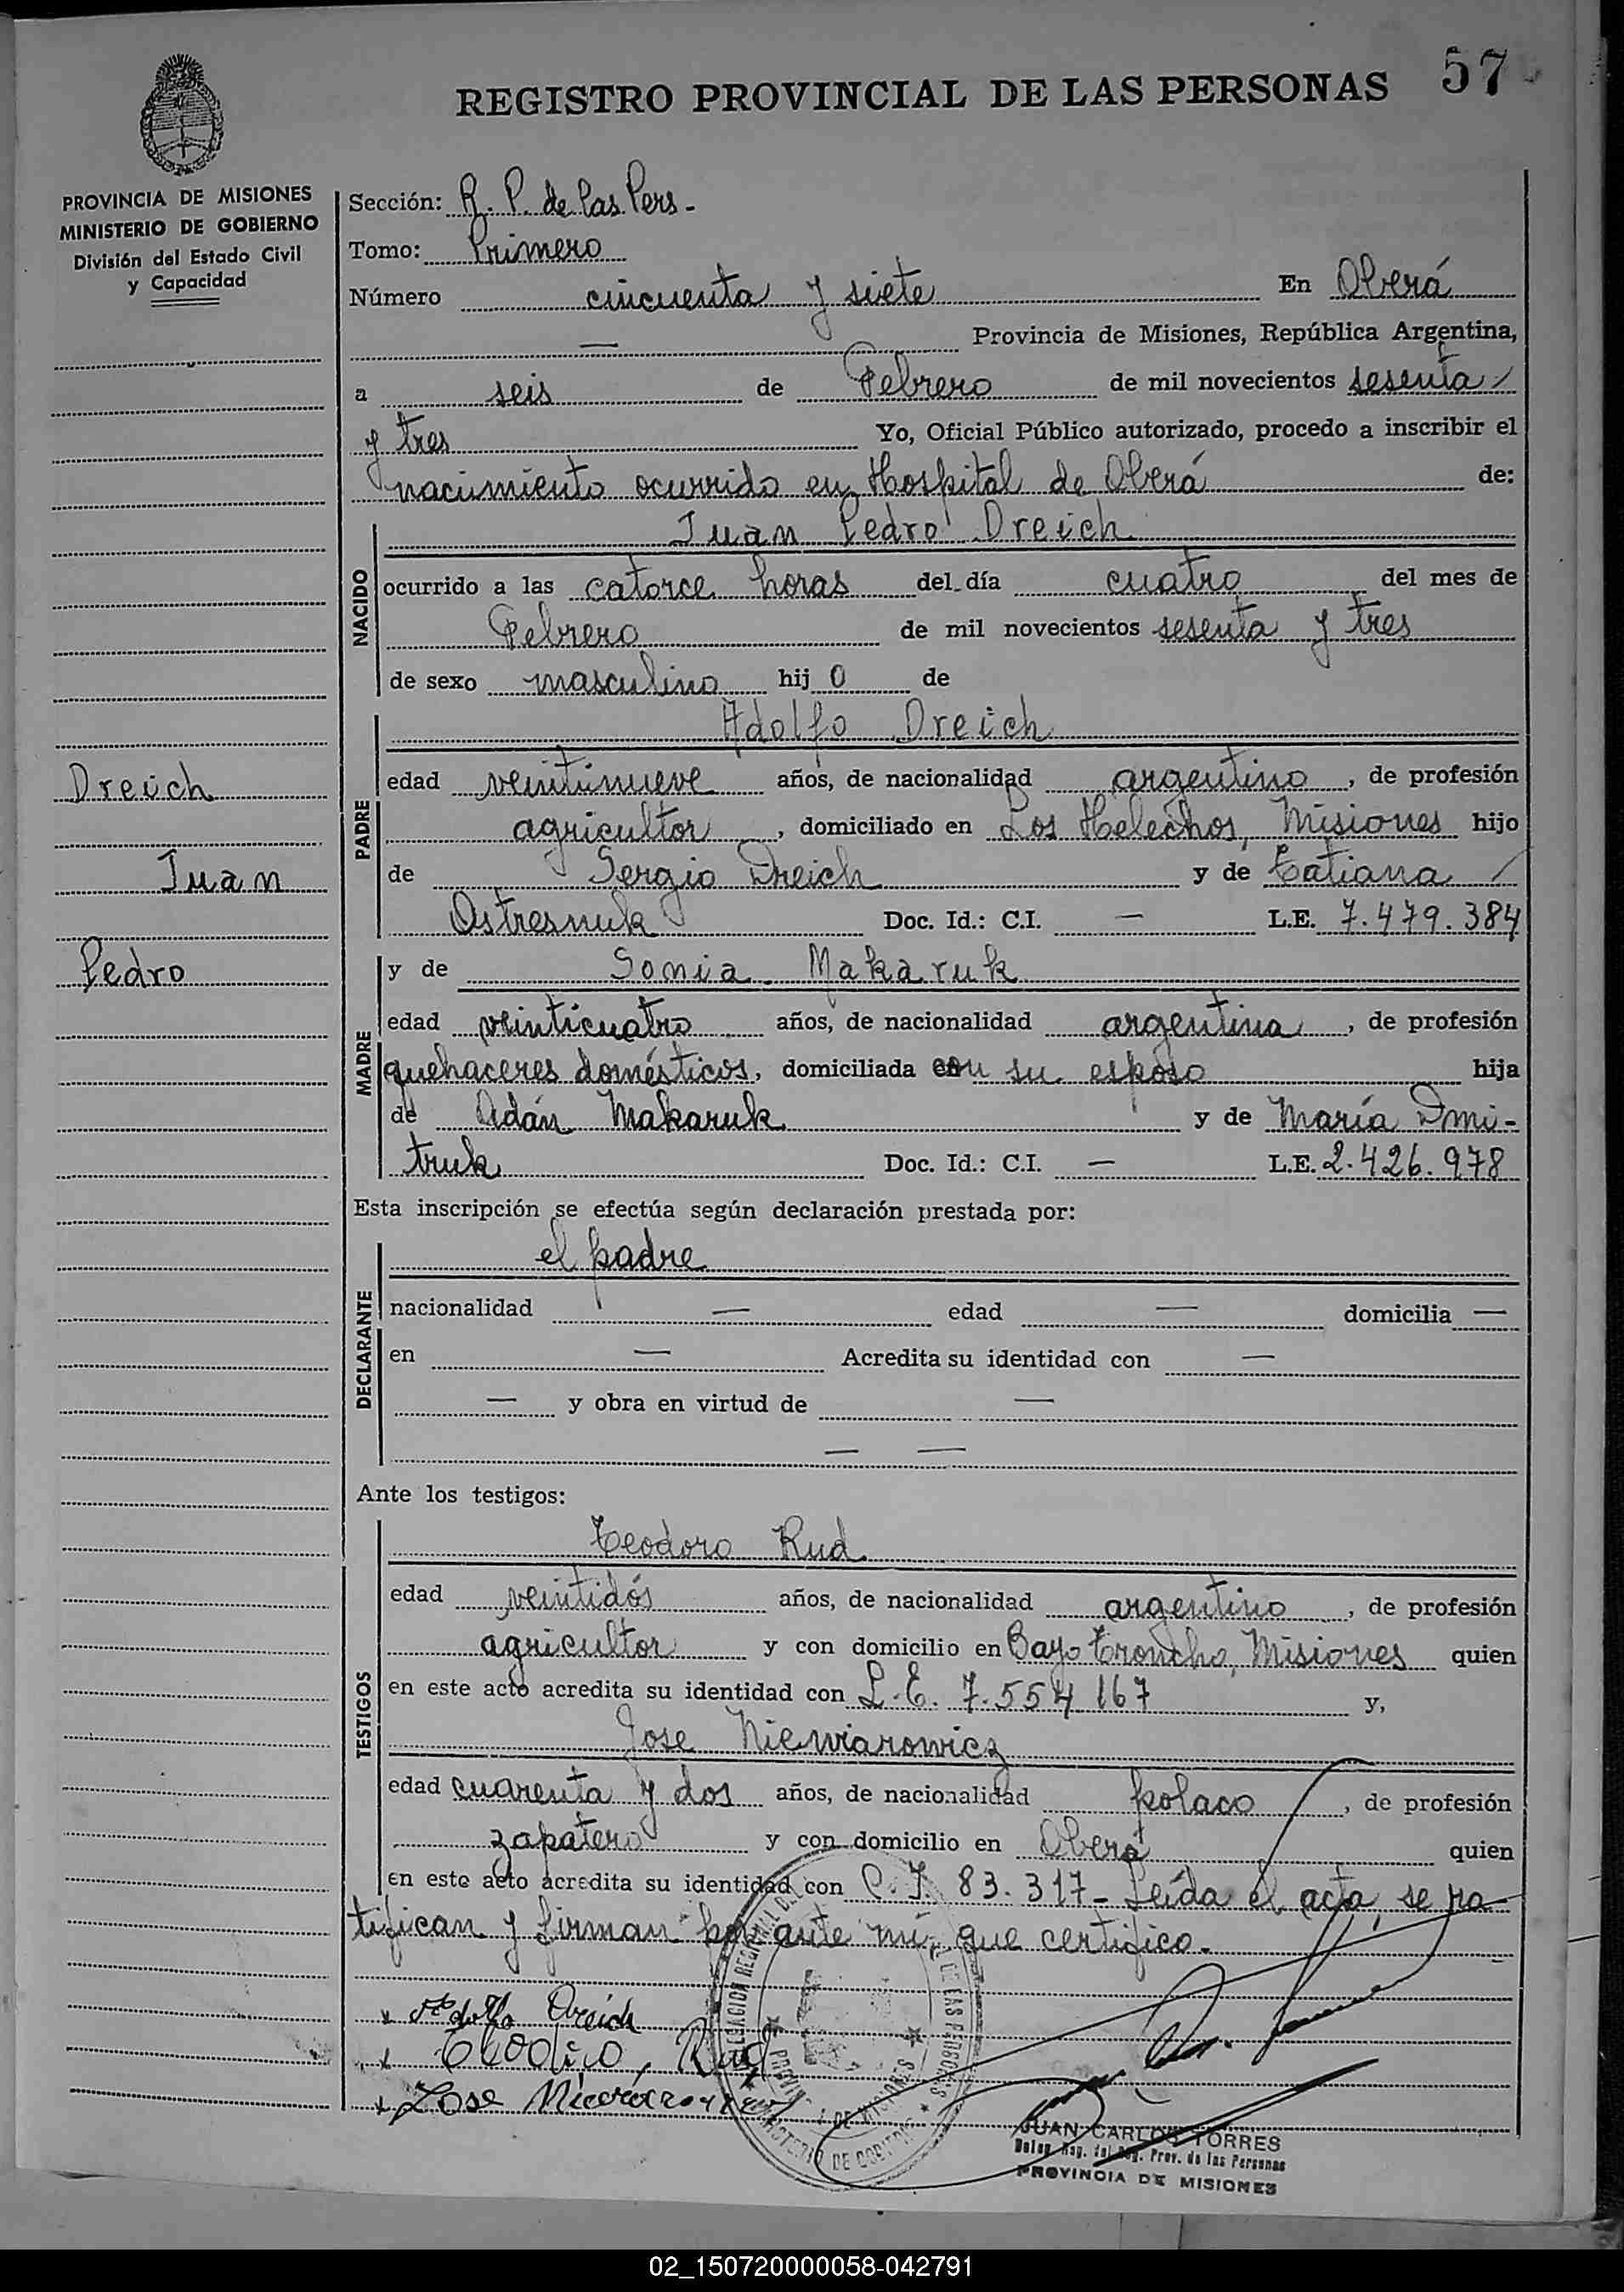 REGISTRO PROVINCIAL DE LAS PERSONAS 57
PROVINCIA DE MISIONES
MINISTERIO DE GOBIERNO
División del Estado Civil
y Capacidad
Sección: R. P. de las Pers.-
Tomo: Primero
Número cincuenta y siete En Oberá
— Provincia de Misiones, República Argentina,
a seis de Febrero de mil novecientos sesenta
y tres Yo, Oficial Público autorizado, procedo a inscribir el
nacimiento ocurrido en Hospital de Oberá de:
Juan Pedro Dreich
NACIDO
ocurrido a las catorce horas del día cuatro del mes de
Febrero de mil novecientos sesenta y tres
de sexo masculino hij o de
Adolfo Dreich
PADRE
edad veintinueve años, de nacionalidad argentino, de profesión
agricultor, domiciliado en Los Helechos, Misiones hijo
de Sergio Dreich y de Tatiana
Ostresnuk Doc. Id.: C.I. — L.E. 7.479.384
Dreich
Juan
Pedro
y de Sonia Makaruk
MADRE
edad veinticuatro años, de nacionalidad argentina, de profesión
quehaceres domésticos, domiciliada con su esposo hija
de Adán Makaruk y de María Dmi-
truk Doc. Id.: C.I. — L.E. 2.426.978
Esta inscripción se efectúa según declaración prestada por:
el padre
DECLARANTE
nacionalidad — edad — domicilia —
en — Acredita su identidad con —
— y obra en virtud de —
— —
Ante los testigos:
Teodoro Rud
TESTIGOS
edad veintidós años, de nacionalidad argentino, de profesión
agricultor y con domicilio en Bayo Troncho, Misiones quien
en este acto acredita su identidad con L.E. 7.554.167 y,
Jose Niewiarowicz
edad cuarenta y dos años, de nacionalidad polaco, de profesión
zapatero y con domicilio en Oberá quien
en este acto acredita su identidad con C.I. 83.317- Leída el acta, se ra-
tifican y firman por ante mí, que certifico.-
x Adolfo Dreich
x Teodoro, Rud
x Jose
JUAN CARLOS TORRES
Deleg. Reg. del Reg. Prov. de las Personas
PROVINCIA DE MISIONES
MINISTERIO DE GOBIERNO
02_150720000058-042791